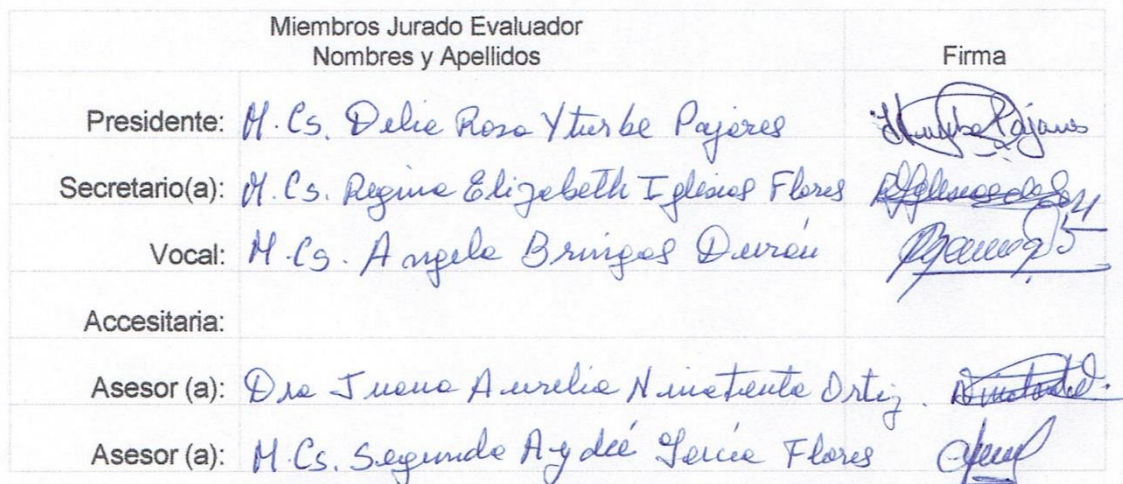 Miembros Jurado Evaluador
Nombres y Apellidos Firma
Presidente: M.Cs. Delia Rosa Yturbe Pajares
Secretario(a): M.Cs. Regina Elizabeth Iglesias Flores
Vocal: M.Cs. Angela Bringas Durán
Accesitaria:
Asesor (a): Dra Juana Aurelia Ninatanta Ortiz.
Asesor (a): M.Cs. Segunda Aydeé García Flores